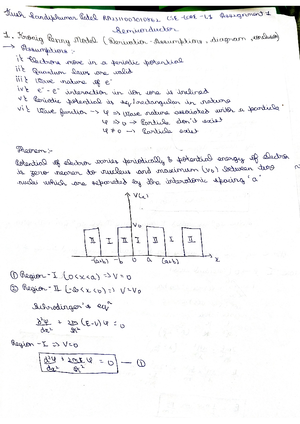 Assignment 1
Semiconductor
1. Kronig Penny Model (Derivation - Assumptions, diagram, conclusion)
→ Assumptions:-
i) Electrons move in a periodic potential
ii) Quantum laws are valid
iii) Wave nature of e⁻
iv) e⁻-e⁻ interaction in ion core is
v) Periodic potential is sq/rectangular in nature
vi) Wave function → ψ ⇒ Wave nature associated with a particle
ψ = 0 → Particle don't exist
ψ ≠ 0 → Particle exist
Theorem:-
Potential of electron varies periodically & potential energy of electron
is zero nearer to nucleus and maximum (V₀) between two
nuclei which are separated by the interatomic spacing 'a'
V(x)
V₀
II II I II I II
-(a+b) -b 0 a (a+b) x
① Region - I (0<x<a) ⇒ V=0
② Region - II (-b<x<0) ⇒ V=V₀
Schrodinger's eqⁿ
d²ψ/dx² + 2m/ħ² (E-V)ψ = 0
Region - I ⇒ V=0
d²ψ/dx² + 2mE/ħ² ψ = 0 — ①